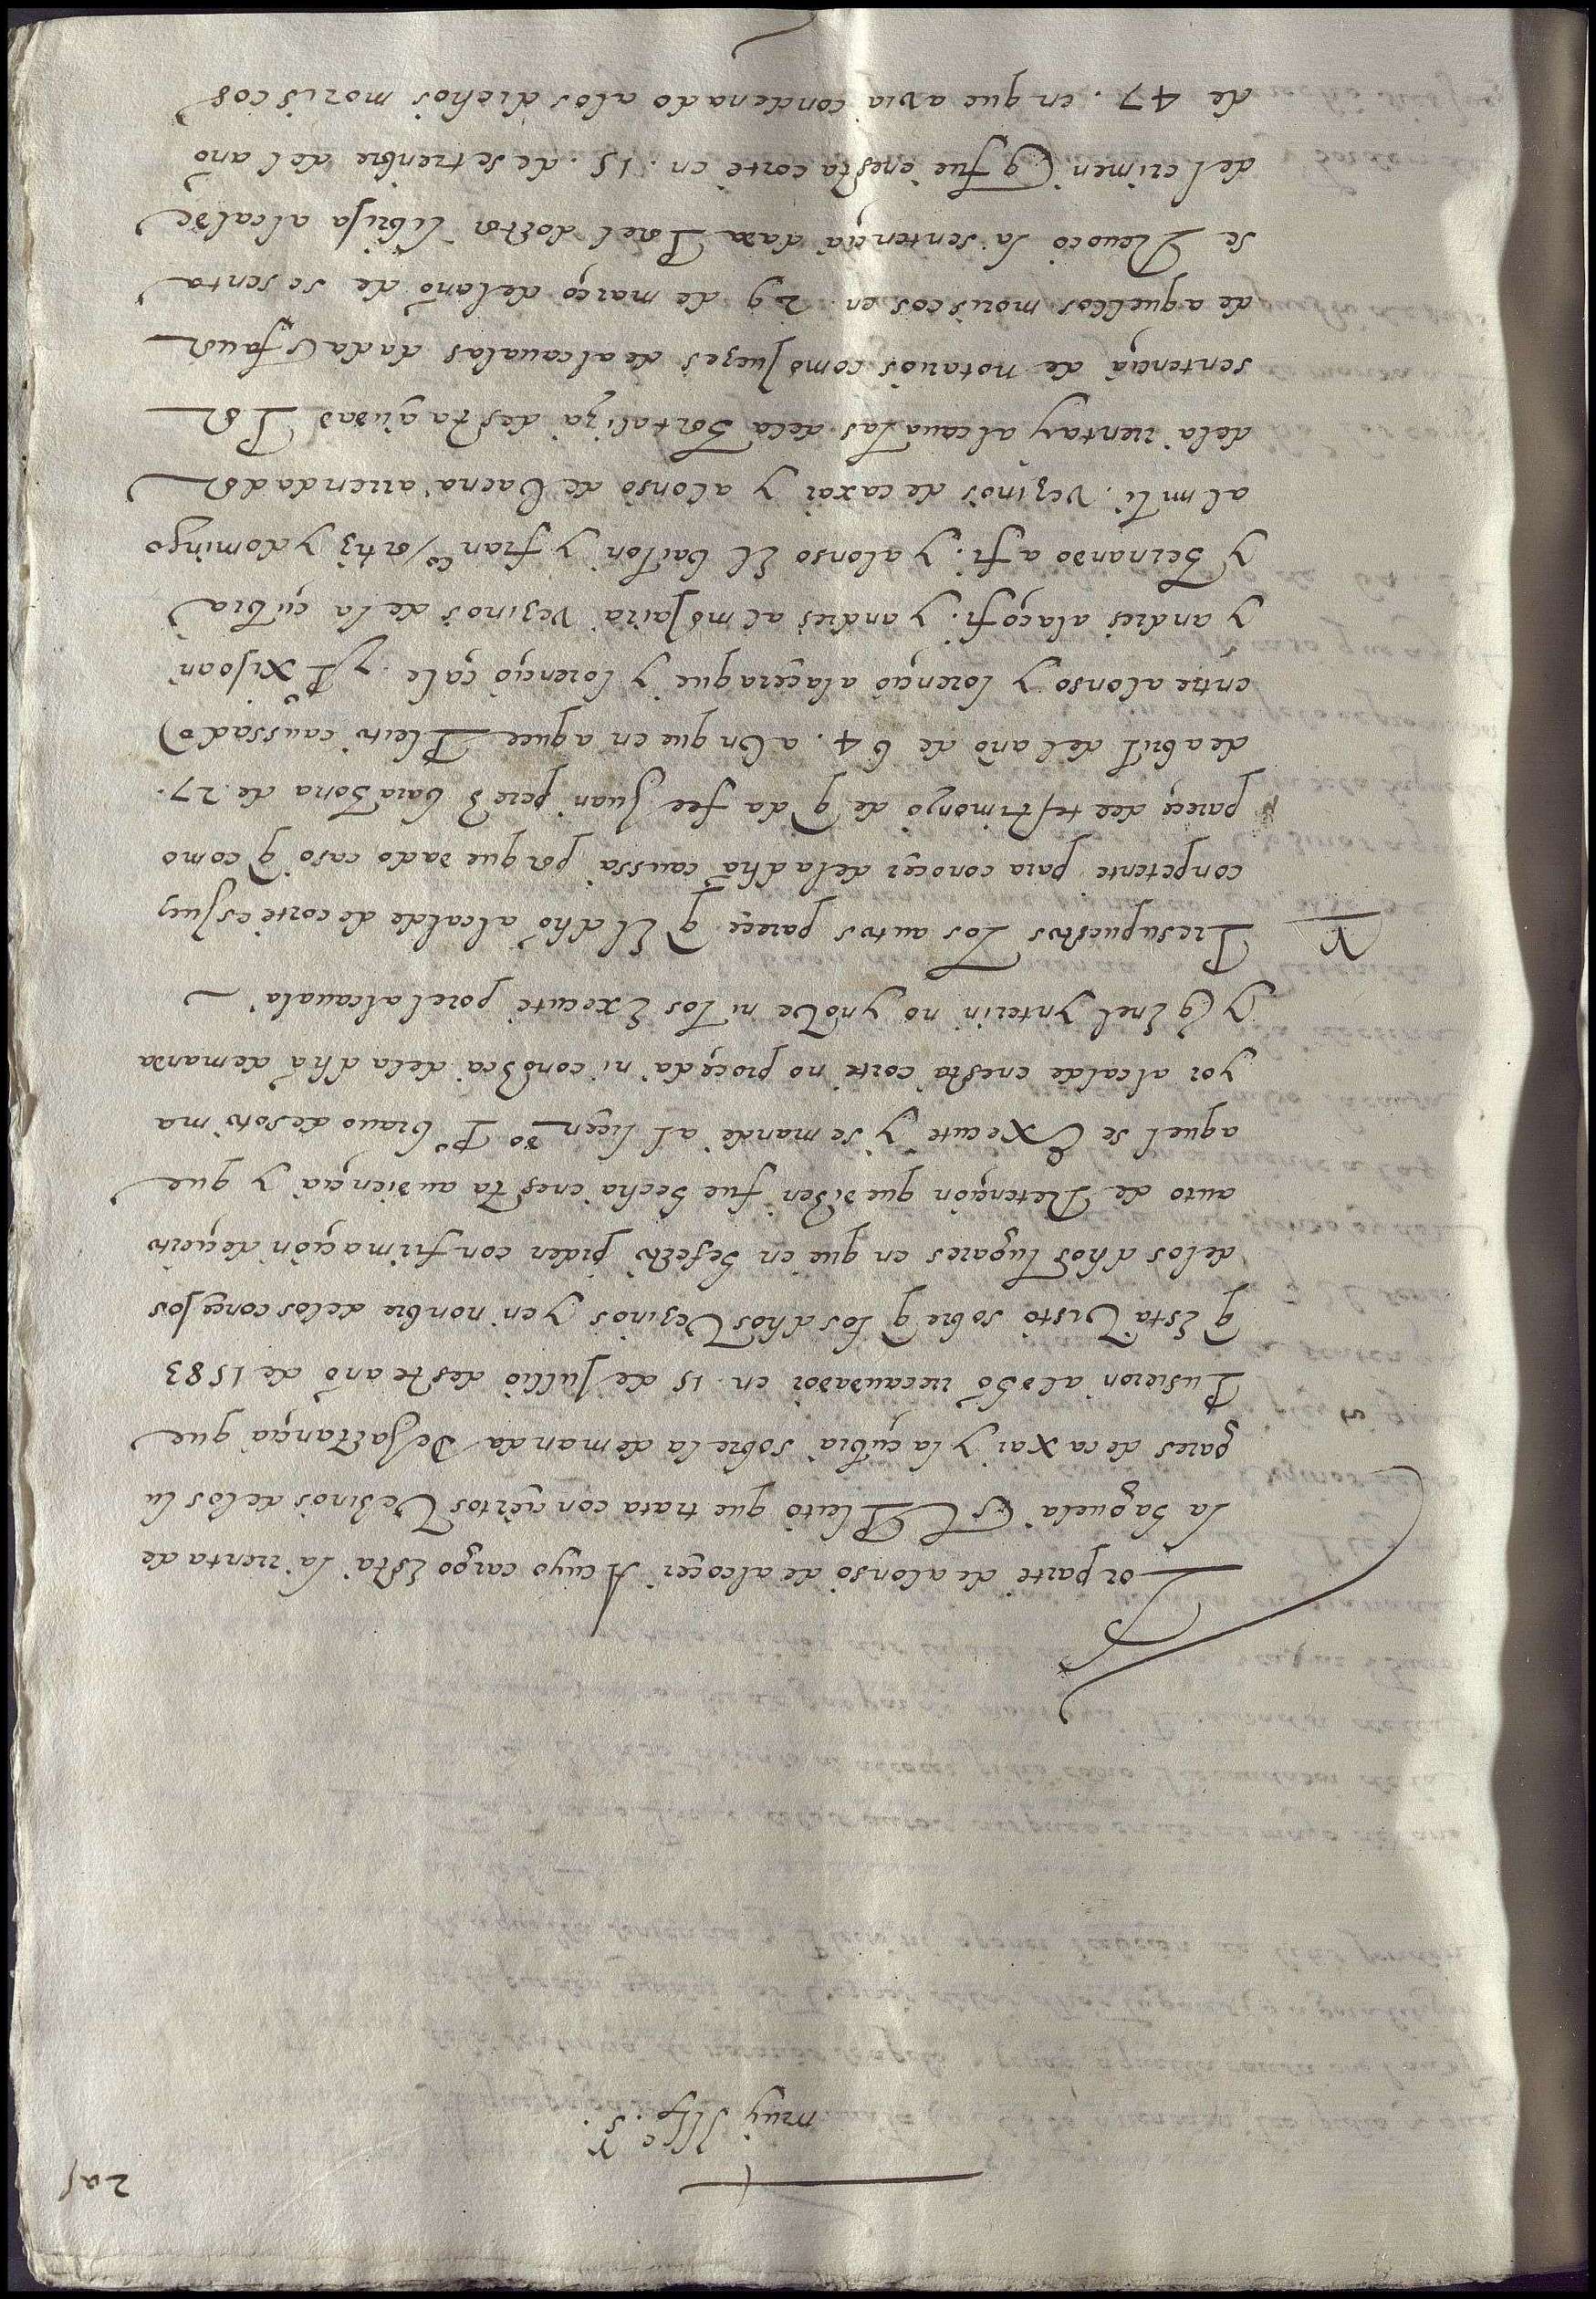 2af
muy Ille. s.r
Por parte de alonso de alcoçer A cuyo cargo Esta la rrenta de
la haguela Es El Pleito que trata con çiertos Vezinos de los lu
gares de caxar y la çubia sobre la demanda De Jactançia que
Pusieron al dho rrecaudador en 15 de Jullio deste año de 1583
q Esta Visto sobre q los dhos Vezinos y en nonbre de los conçejos
de los dhos lugares en que en hefecto piden confirmaçion de çierto
auto de Retençion que dizen fue hecha en esta audiençia y que
aquel se Execute y se mande al liçen.do P.o brauo de soto ma
yor alcalde en esta corte no proçeda ni conozca de la dha demanda
y q En el ynterin no ynove ni los Execute por el alcauala
Presupuestos Los autos pareçe q El dho alcalde de corte es Juez
conpetente para conoçer de la dha caussa porque dado caso q como
pareçe del testimonio de q da fee Juan perez barahona de 27.
de abril del año de 64. a Un que en aquel Pleito caussado
entre alonso y lorençio alaçeraque y lorençio çale y P.o xijoan
y andres alaçofi. y andres almojaira vezinos de la çubia
y hernando afi. y alonso El bailon y fran.co ortiz y domingo
almti. vezinos de caxar y alonso de baena arrendador
de la rrenta y alcaualas de la hortaliza desta çiudad Por
sentençia de notarios como Juezes de alcaualas dada En fauor
de aquellos moriscos en 29 de março del año de sesenta
se Reuoco la sentençia dada Por el doctor librixa alcalde
del crimen q fue en esta corte en .15. de setienbre del año
de 47. en que avia condenado a los dichos moriscos